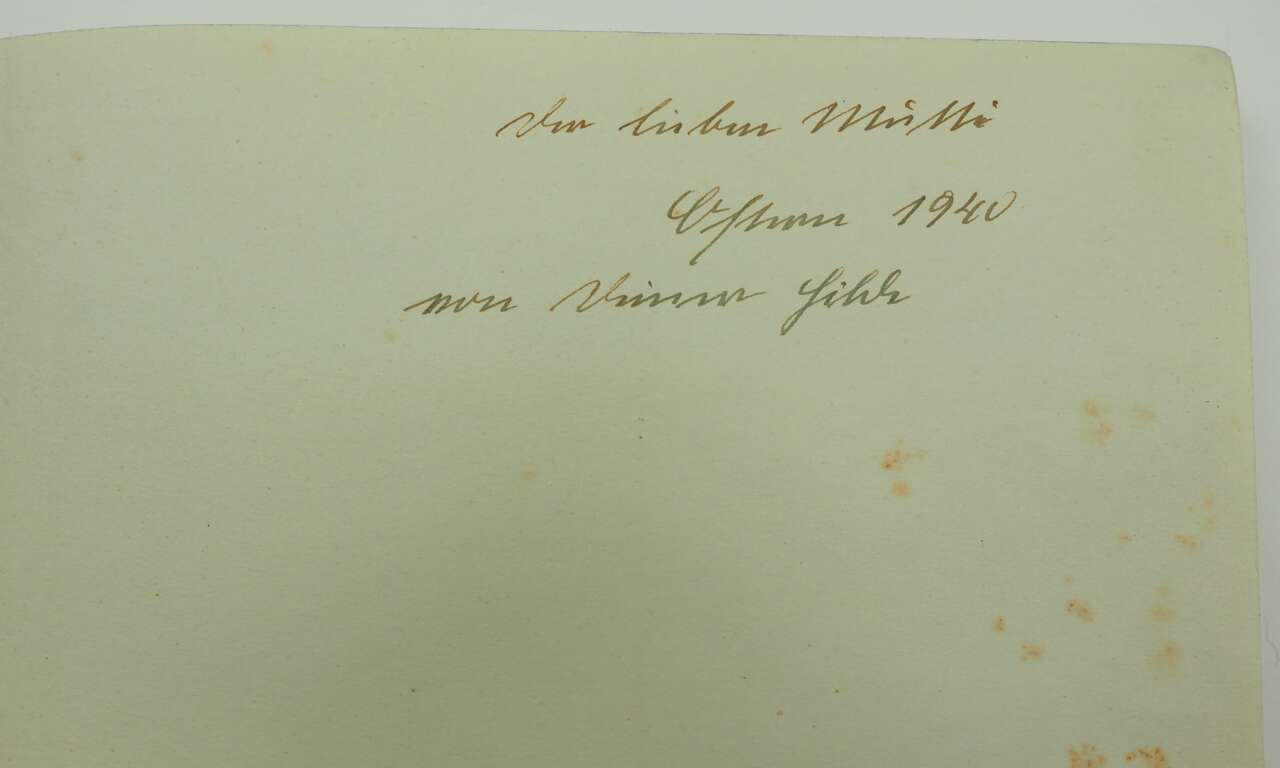 Der lieben Mutti
Ostern 1940
von Deiner Hilde